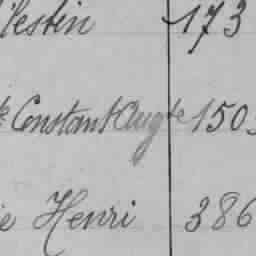 lestin 173
Constant Augte 150
ie Henri 386